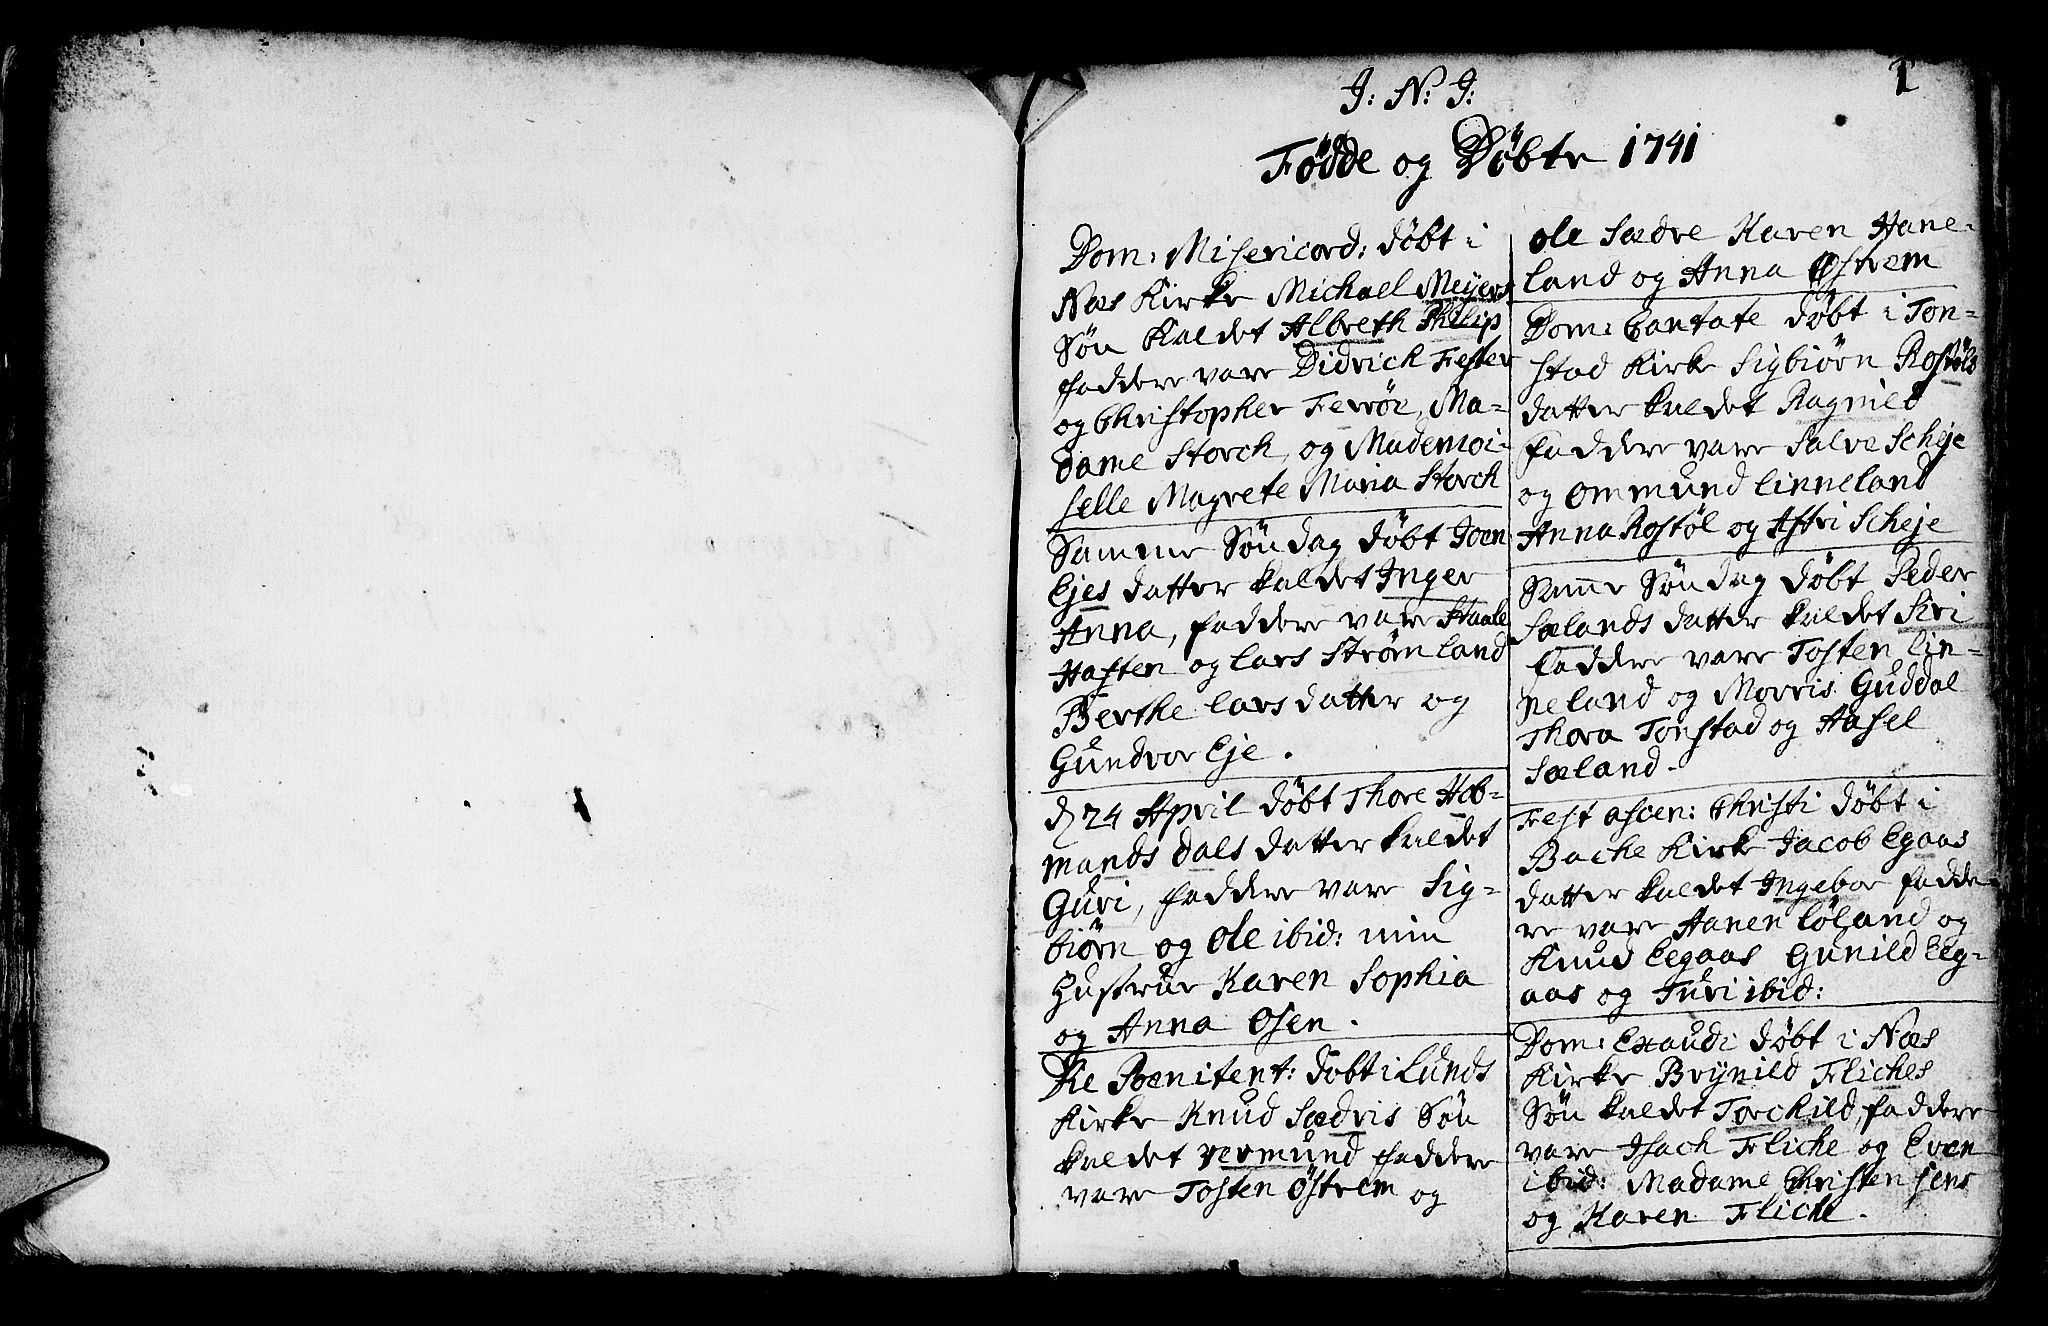 1
J: N: J:
Fødde og Døbte 1741
Dom: Misericord: døbt i
Næs Kirke Michael Meyers
Søn kaldet Albreth Philip
faddere vare Didrich Fester
og Christopher Ferrøe, Ma-
dame Storch, og Mademoi-
selle Magrete Maria Storch
Samme Søndag døbt Joen
Ejes datter kaldet Inger
Anna, faddere vare Staale
Haften og Lars Strømland
Berthe Larsdatter og
Gundvor Eje.
d 24 April døbt Thore Hob-
mandsdals datter kaldet
Guri, faddere vare Sig-
biørn og Ole ibid: min
Hustrue Karen Sophia
og Anna Osen.
Die Poenitent: døbt i Lunds
Kirke Knud Sædvis Søn
kaldet Vermund faddere
vare Tosten Østrem og
Ole Sædre Karen Hane-
land og Anna Østrem
Dom: Cantate døbt i Ton-
stad Kirke Sigbiørn Rostøls
datter kaldet Ragnild
faddere vare Salve Scheje
og Ommund Linneland
Anna Rostøl og Astri Scheje
Samme Søndag døbt Peder
Sælands datter kaldet Siri
faddere vare Tosten Lin-
neland og Morris Guddal
Thora Tonstad og Aasel
Sæland.
Fest ascen: Christi døbt i
Backe Kirke Jacob Egaas
datter kaldet Ingebor fadde-
re vare Hanen Løland og
Knud Eegaas Gunild Eeg-
aas og Turi ibid:
Dom: Exaudi døbt i Næs
Kirke Brynild Fliches
Søn kaldet Torchild, faddere
vare Isach Fliche og Even
ibid: Madame Christensens
og Karen Fliche.